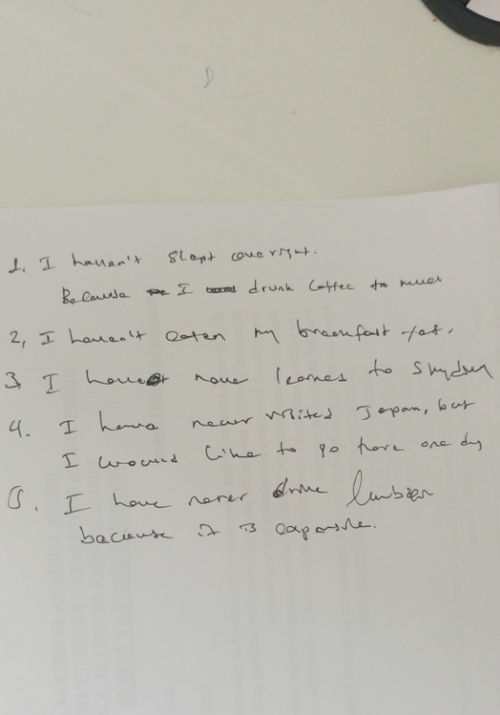 1. I haven't slept overnight.
Because I drunk coffee to much
2, I haven't eaten my breakfast yet.
3, I have to
4. I have never visited Japan, but
I would like to go here one day
5. I have never drive
because it is expensive.